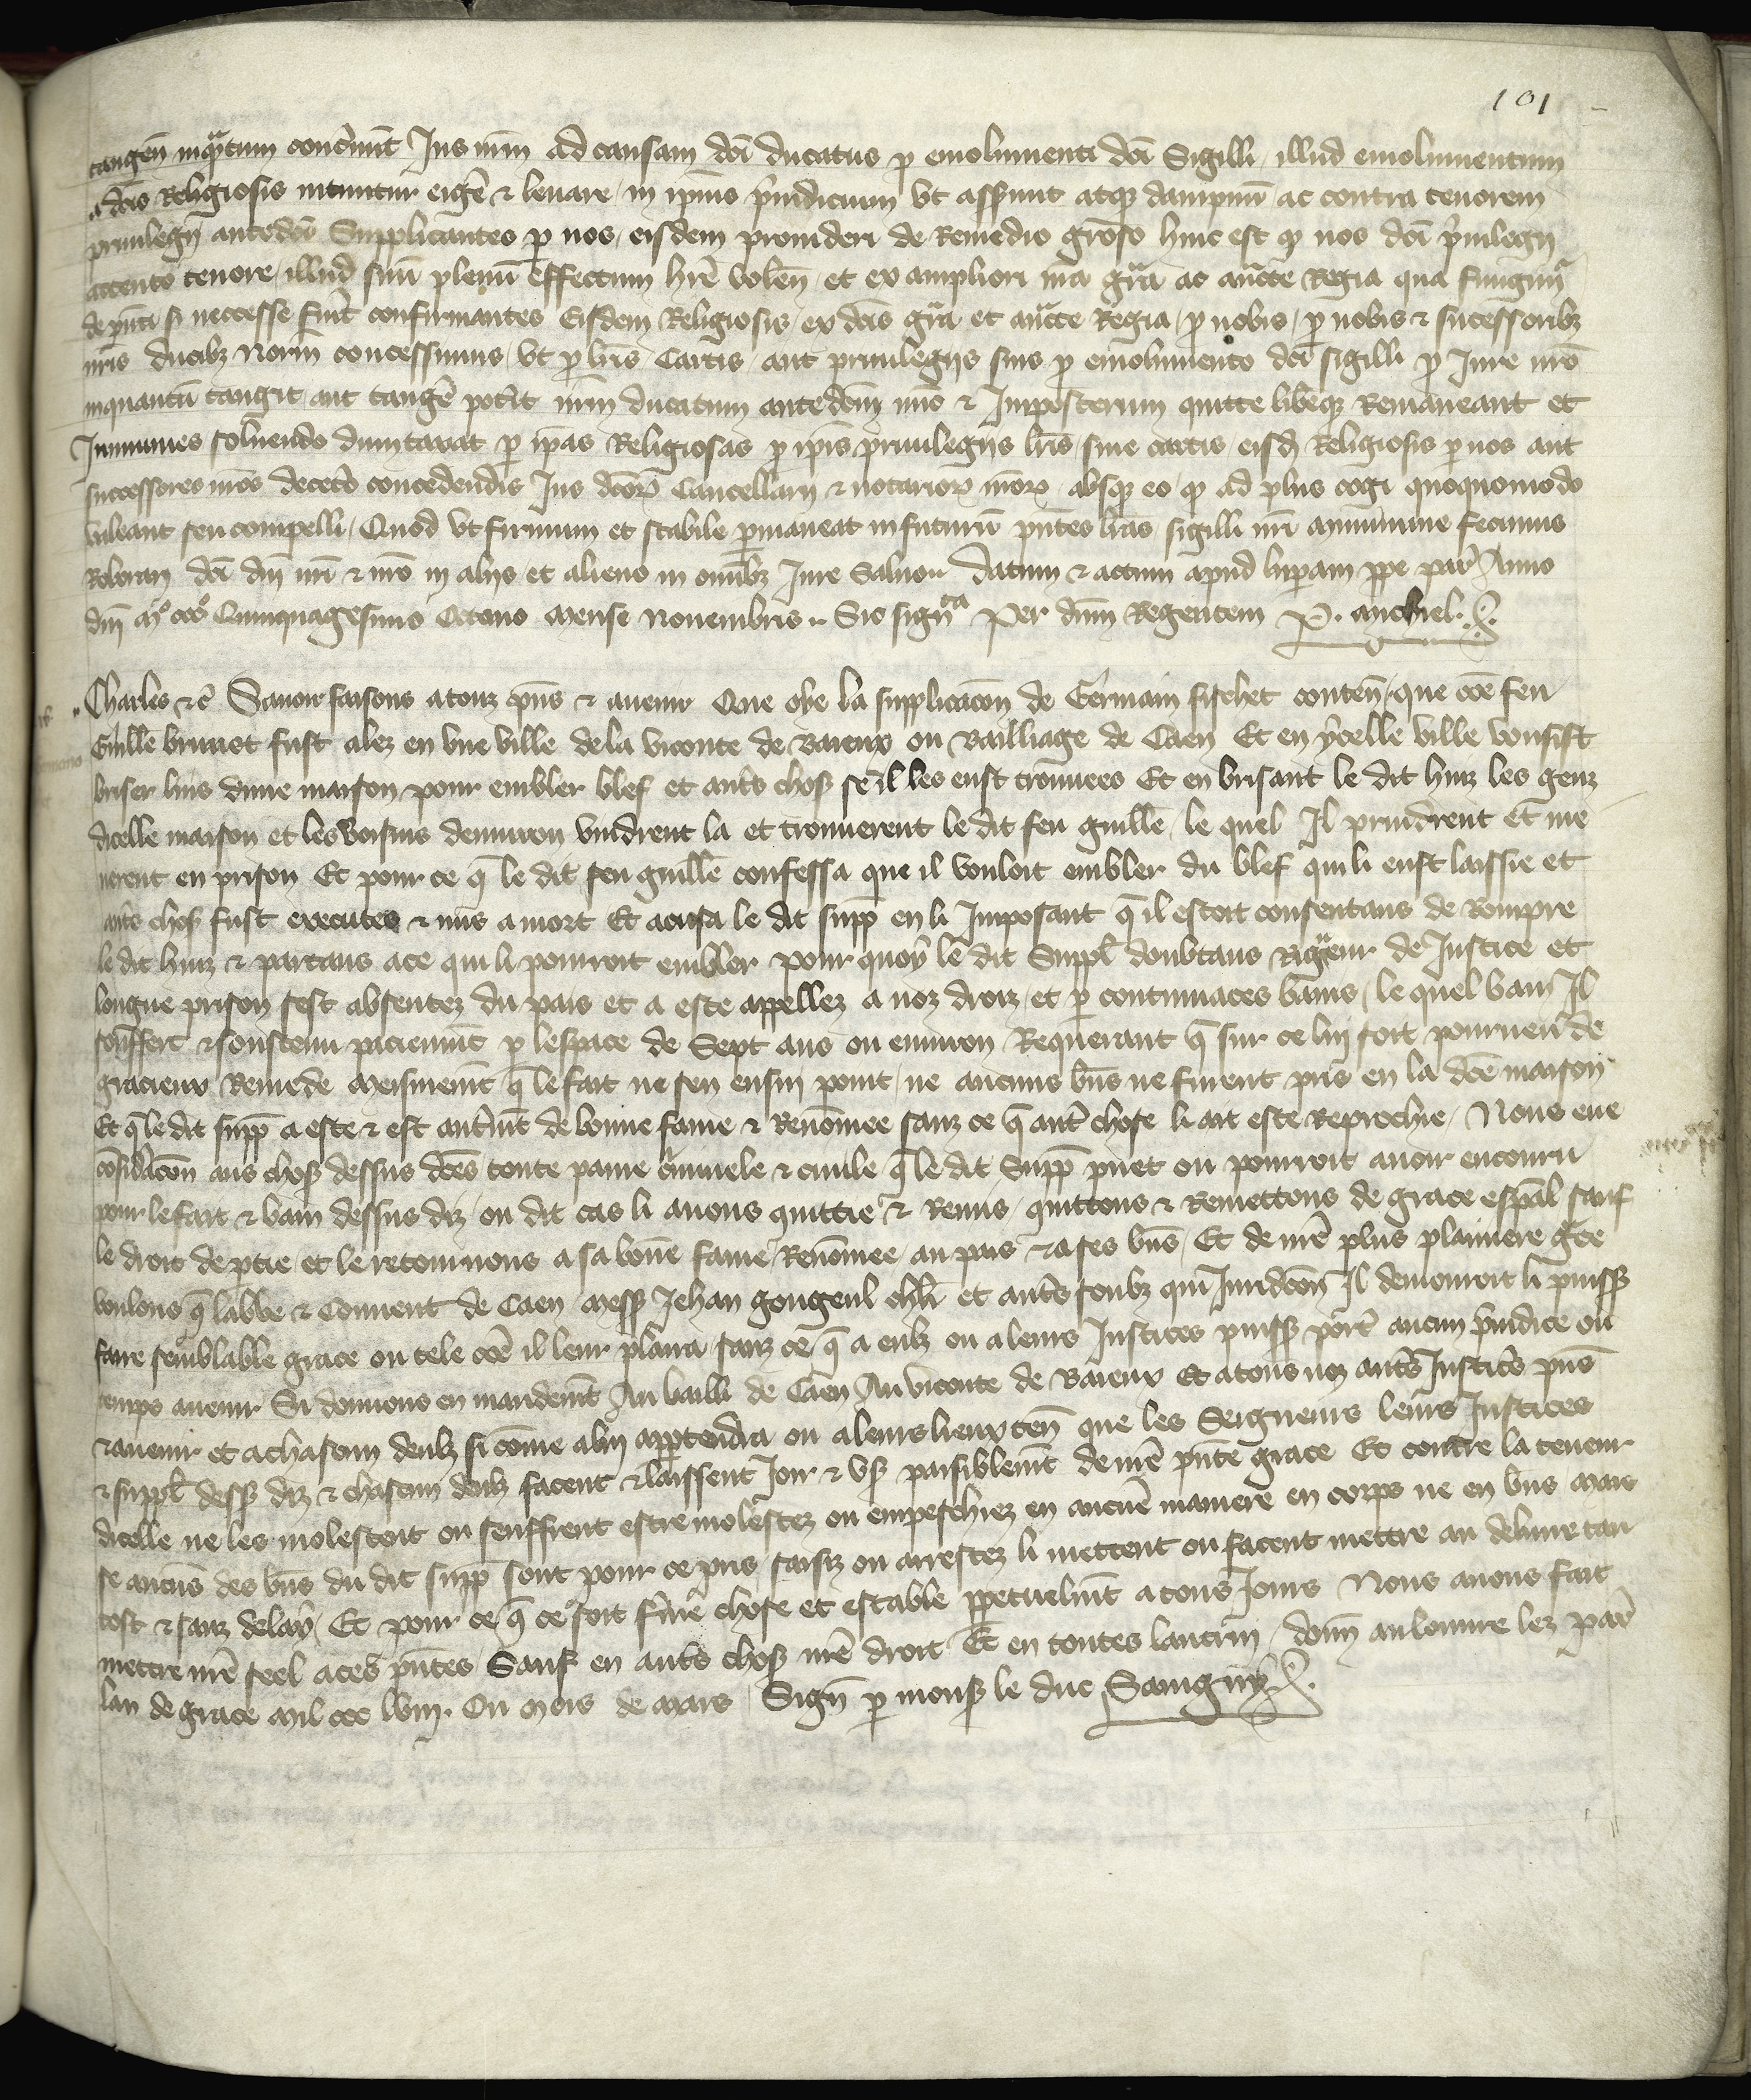 101
tangen̄ inqᵃtum conc̄nūt Jus nr̄m ad causam dc̄i ducatus ꝑ emolumenti dc̄i Sigilli / illud emolumentum
a dc̄is Religiosis nituntur exiḡe ⁊ levare / in ipsius p̄iudicium vt asserūt atqꝫ dampnū ac contra tenorem
privilegij antedc̄i Supplicantes ꝑ nos / eisdem provideri de Remedio gr̄oso hinc est qꝫ nos dc̄i p̄vilegij
attento tenore / illud suū plenū effectum hr̄e volen̄ / et ex ampliori nr̄a gr̄a ac auc̄tte Regia qua fungimᷣ
de pñti si neccesse fuīt confirmantes Eisdem Religiosis / ex dc̄is gr̄a et auc̄tte Regia / ꝑ nobis / ꝑ nobis ⁊ successoribꝫ
nr̄is ducibꝫ Norm̄ concessimus / vt ꝑ lr̄is Cartis / aut privilegijs suis ꝑ emolumento dc̄i sigilli ꝑ Jure nr̄o
inquantū tangit / aut tanḡe pot̄it nr̄m ducatum antedc̄m nūc ⁊ Imposterum quitte lib̄eqꝫ Remaneant et
Immunes solvendo dumtaxat ꝑ ip̄as Religiosas ꝑ ip̄is privilegijs lr̄is / sive cartis eisd̄ Religiosis ꝑ nos aut
successores nr̄os decet̄o concedendis Jus dc̄oꝝ Cancellarij ⁊ notarioꝝ nr̄oꝝ / absqꝫ eo / qꝫ ad plus cogi quoquomodo
valeant seu compelli / Quod vt firmum et stabile ꝑmaneat in futurū pñtes lr̄as sigilli nr̄i am̄imine fecimus
Roborarj dc̄i dn̄j nr̄i ⁊ nr̄o in alijs / et alieno in omībꝫ Jure Salvo .. Datum ⁊ actum apud luparam ꝓpe par̄ Anno
dn̄j mᵒ cccᵒ Quinquagesimo Octavo Mense Novembris .. Sic sign̄ta Per dn̄m Regentem P. Michiel.
Charles ⁊c̄ Savoir faisons a touz pñs ⁊ avenir Que oye la supplicac̄on de Germain fischet conten̄ / que cōe feu
Guille brunet fust alez en vne ville de la viconte de Baieux ou Bailliage de Caen Et en ycelle ville vousist
briser luis dune maison / pour embler blef et aut̄s choses se il les eust trouvees Et en brisant le dit huiz les genz
dicelle maison et les voisins denviron vindrent la et trouverent le dit feu guille / le quel Il prindrent et me
nerent en prison Et pour ce q̄ le dit feu guille confessa que il vouloit embler du blef qui li eust laissie et
aut̄s choses fust executes ⁊ mis a mort Et acusa le dit supp̄ en li Imposant q̄ il estoit consentans de Rompre
le dit huiz ⁊ partans a ce qui li pourroit embler pour quoy le dit Suppl̄ doubtans Rigueur de Justice et
longue prison sest absentez du pais et a este appellez a noz droiz / et ꝑ contumaces banis / le quel ban Il
souffert ⁊ soustenu pacienm̄t ꝑ lespace de Sept ans ou environ Requerant q̄ sur ce luj soit pourveu de
gracieux Remede meismem̄t q̄ le fait ne sen ensuj point / ne aucuns bn̄s ne furent pris en la dc̄e maison
Et q̄ le dit supp̄ a este ⁊ est aut̄m̄t de bonne fame ⁊ Renōmee sanz ce q̄ aut̄ chose li ait este Reprochie / Nous eue
cōsid̄ac̄on aus choses dessus dc̄es toute paine c̄minele ⁊ civile q̄ le dit Supp̄ puet ou pourroit avoir encouru
pour le fait ⁊ bam dessus diz / ou dit cas li avons quittie ⁊ Remis / quittons ⁊ Remettons de grace esp̄al sauf
le droit de ꝑtie / et le retournons a sa bōne fame Renōmee au pais ⁊ a ses bn̄s / Et de nr̄e plus plainiere gr̄ce
voulons q̄ labbe ⁊ Convent de Caen Mess̄ Jehan Gougeul chl̄r et aut̄s soubz qui Juridc̄on Il demouroit li puiss̄
faire semblable grace ou tele cōe il leur plaira sanz ce q̄ a eulz ou a leurs Justices puiss̄ port̄ aucun p̄iudice ou
temps avenir Si donnons en mandem̄t Au bailli de Caen Au viconte de Baieux Et a tous noz aut̄s Justic̄s pñs
⁊ avenir et a chascun deulz si cōme a luj appartendra ou a leurs lieuxten̄ que les Seigneurs leurs Justices
⁊ suppl̄ dess̄ diz ⁊ chascun deulz facent ⁊ laissent Joir ⁊ vs̄ paisiblem̄t de nr̄e pñte grace Et contre la teneur
dicelle ne les molestent ou seuffrent estre molestez ou empeschiez en aucūe maniere en corps ne en biens Mais
se aucūs des bn̄s du dit supp̄ sont pour ce pris saisiz ou arrestez li mettent ou facent mettre au delivre tan
tost ⁊ sanz delay / Et pour ce q̄ ce soit ferme chose et estable ꝑpetuelm̄t a tous Jours Nous avons fait
mettre nr̄e seel a ces pñtes Sauf en aut̄s choses nr̄e droit Et en toutes lautruj / donn̄ au louvre lez par̄
lan de grace Mil ccc lviij. Ou Mois de Mars / Sign̄ ꝑ mons̄ le duc Savigny